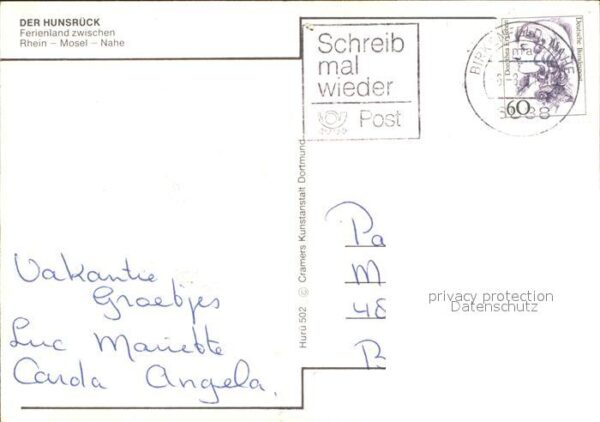 DER HUNSRÜCK
Ferienland zwischen
Rhein – Mosel – Nahe
Schreib
mal
wieder
Post
Deutsche Bundespost
60
Huru 502 © Cramers Kunstanstalt Dortmund
Vakantie
Groetjes
Luc Mariette
Carda Angela.
Pa
M
48
privacy protection
Datenschutz